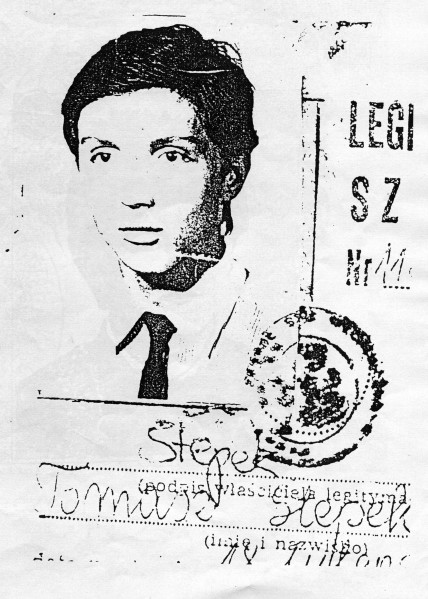 LEGI
S Z
Nr 11
Stępek
(podpis właściciela legityma
Tomasz Stępek
(imię i nazwisko)